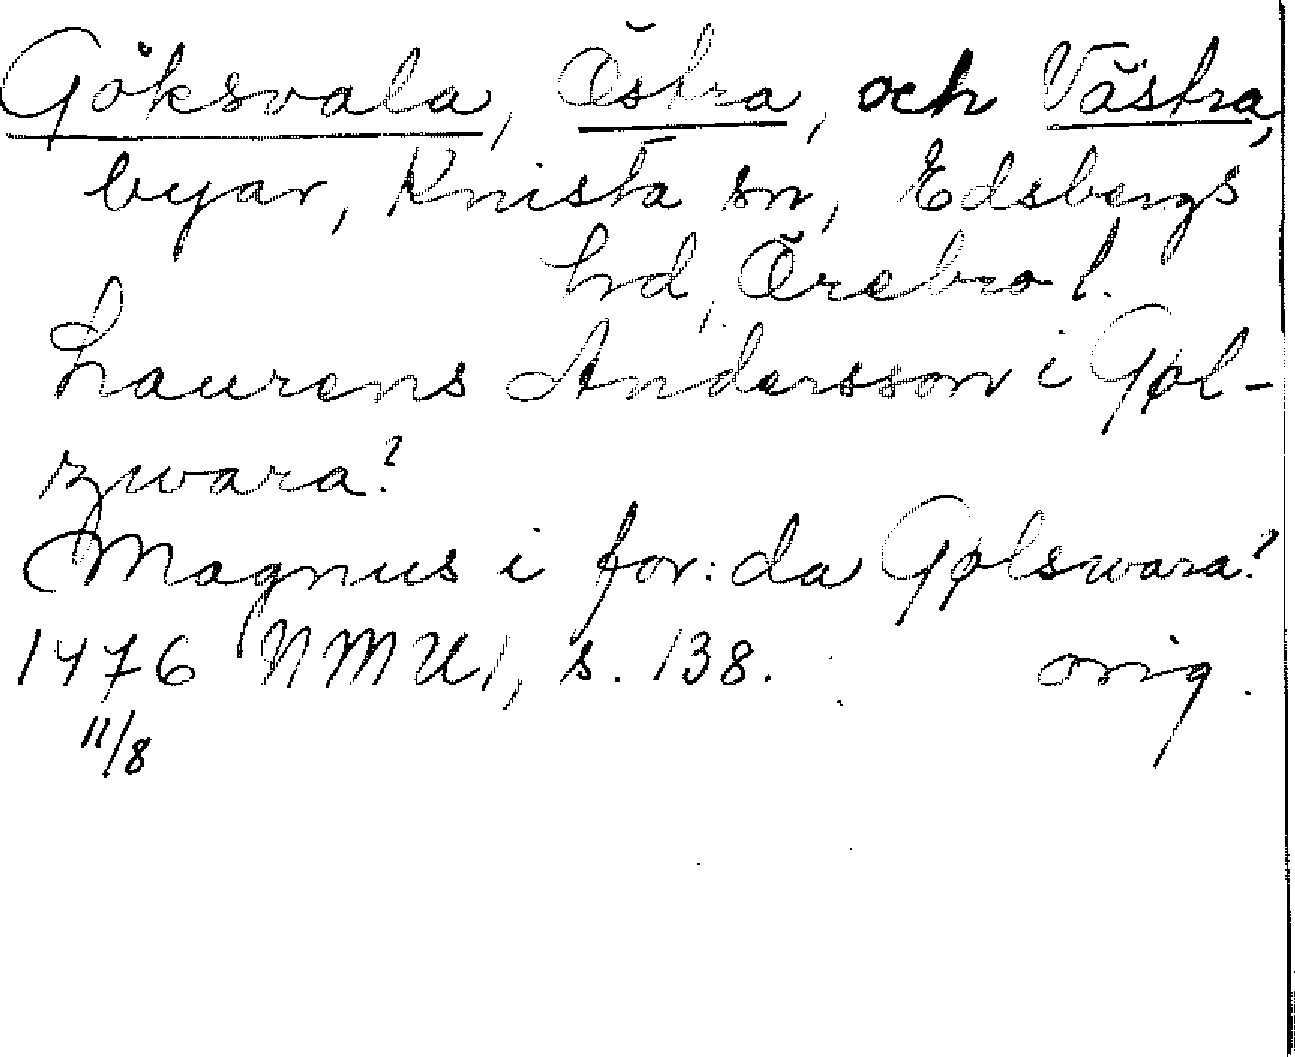 Göksvala, Östra, och Västra,
byar, Knista sn, Edsbergs
hd, Örebro l.
Laurens Andersson i Gøl-
zwara?
Magnus i for: da Gølswara?
1476 NMU1, s. 138. orig.
11/8